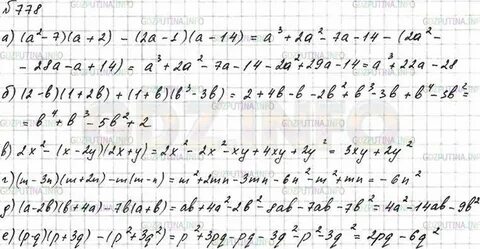 №778
а) (a²-7)(a+2) - (2a-1)(a-14) = a³+2a²-7a-14-(2a²-
-28a-a+14) = a³+2a²-7a-14-2a²+29a-14=a³+22a-28
б) (2-b)(1+2b)+(1+b)(b³-3b) = 2+4b-b-2b²+b³-3b+b⁴-3b²=
= b⁴+b³-5b²+2
в) 2x²-(x-2y)(2x+y)=2x²-2x²-xy+4xy+2y²= 3xy+2y²
г) (m-3n)(m+2n)-m(m-n)=m²+2mn-3mn-6n²-m²+mn=-6n²
д) (a-2b)(b+4a)-7b(a+b)=ab+4a²-2b²-8ab-7ab-7b²=4a²-14ab-9b²
е) (p-q)(p+3q)-(p²+3q²)=p²+3pq-pq-3q²-p²-3q²=2pq-6q²